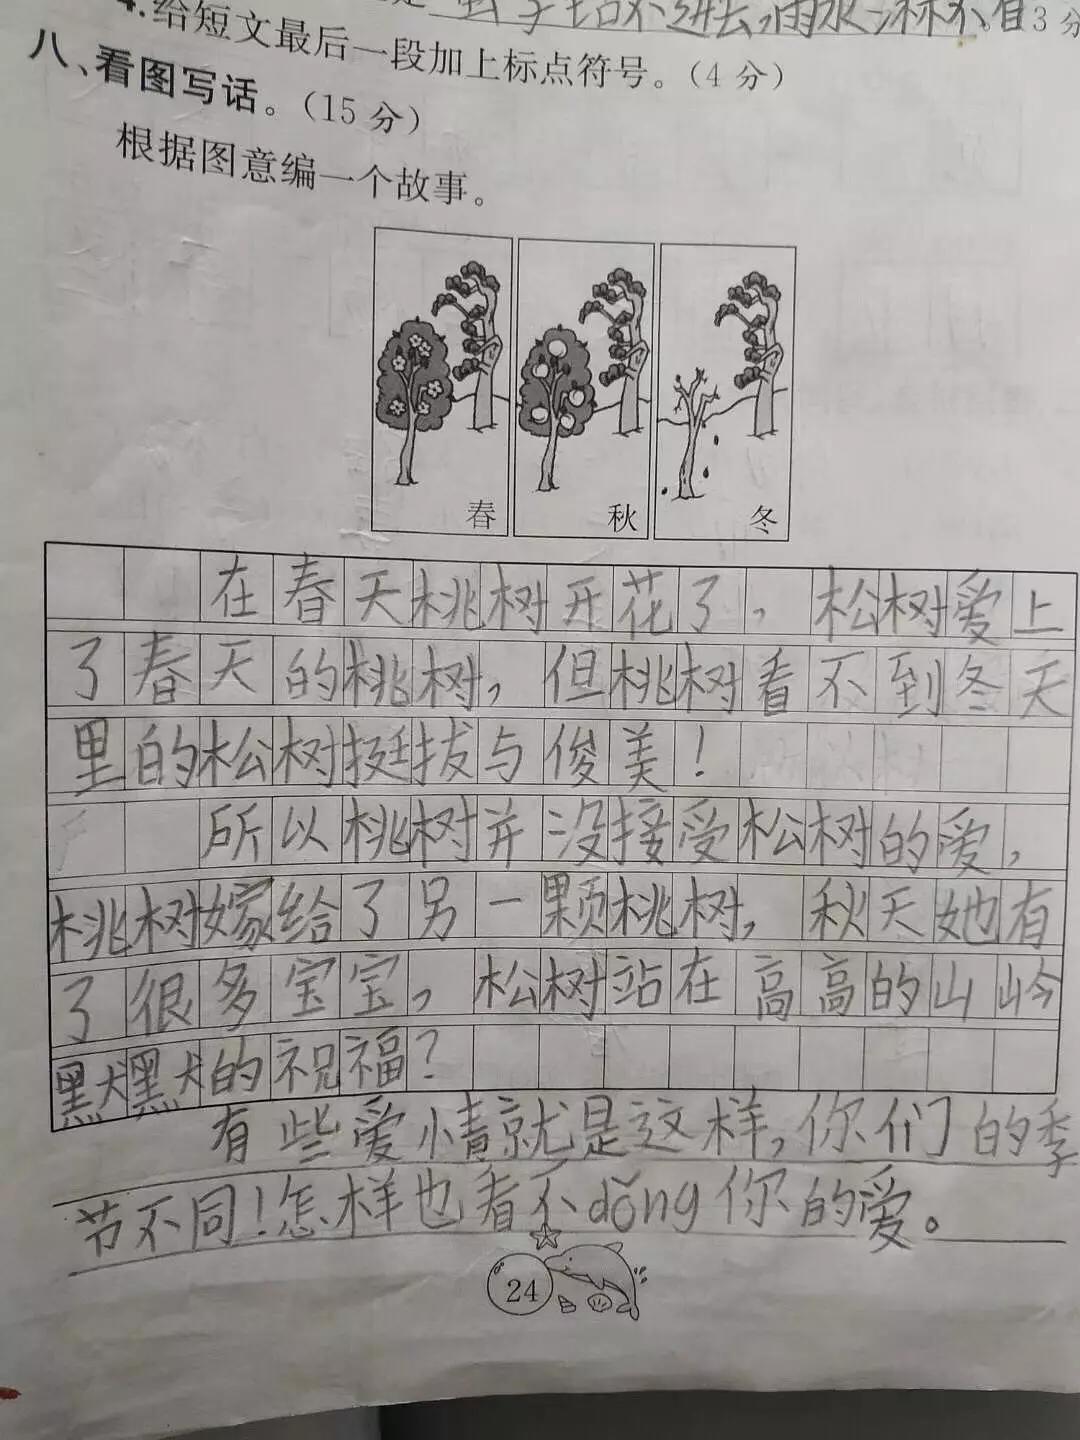 是 去，雨水 淋不着。3分
4.给短文最后一段加上标点符号。（4分）
八、看图写话。（15分）
根据图意编一个故事。
春 秋 冬
在春天桃树开花了，松树爱上
了春天的桃树，但桃树看不到冬天
里的松树挺拔与俊美！
所以桃树并没接受松树的爱，
桃树嫁给了另一颗桃树，秋天她有
了很多宝宝，松树站在高高的山岭
默默的祝福？
有些爱情就是这样，你们的季
节不同！怎样也看不dǒng你的爱。
24